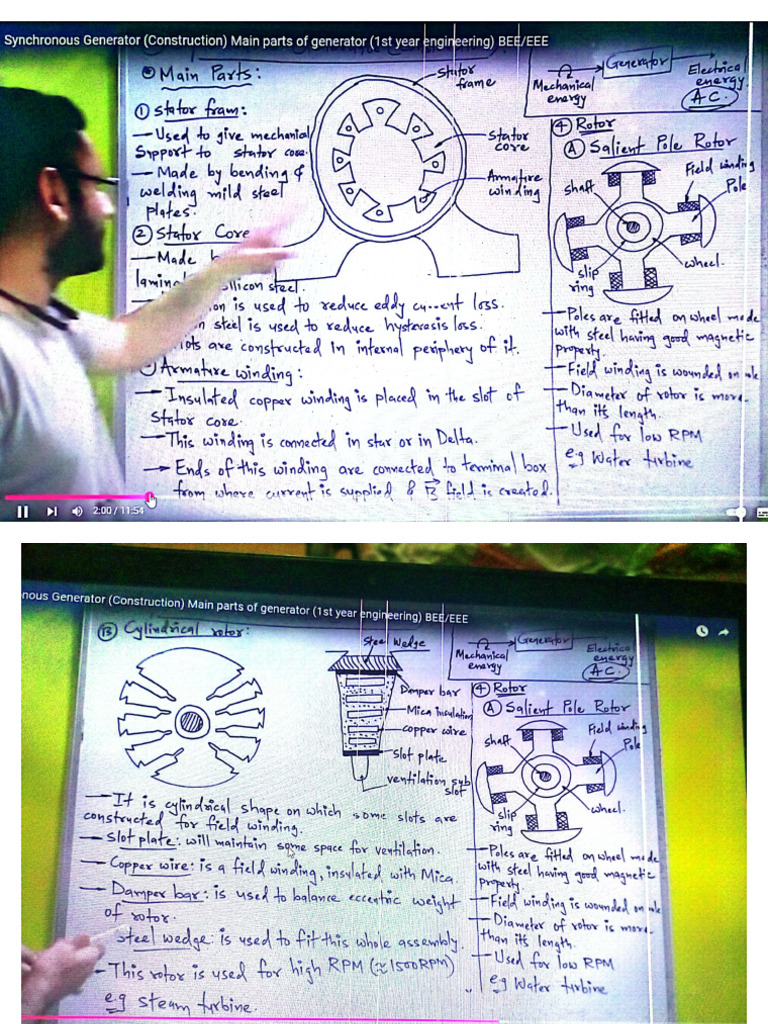 Synchronous Generator (Construction) Main parts of generator (1st year engineering) BEE/EEE
Main Parts:
① Stator fram:
- Used to give mechanical
Support to stator core.
- Made by bending &
welding mild steel
plates.
② Stator Core
- Made
silicon steel.
is used to reduce eddy current loss.
steel is used to reduce hysterasis loss.
slots are constructed in internal periphery of it.
Armature winding:
- Insulated copper winding is placed in the slot of
Stator core.
- This winding is connected in star or in Delta.
→ Ends of this winding are connected to terminal box
from where current is supplied & field is created.
Stator
frame
Stator
core
Armature
winding
Mechanical
energy
Generator
Electrical
energy.
A.C.
④ Rotor
Ⓐ Salient Pole Rotor
Field winding
Pole
shaft
slip
ring
wheel.
- Poles are fitted on wheel made
with steel having good magnetic
property.
- Field winding is wounded on
- Diameter of rotor is more
than its length.
- Used for low RPM
e.g Water turbine
2:00 / 11:54
nous Generator (Construction) Main parts of generator (1st year engineering) BEE/EEE
Cylindrical rotor:
Steel Wedge
Damper bar
Mica insulation
copper wire
Slot plate
ventilation sub
slot
- It is cylindrical shape on which some slots are
constructed for field winding.
- Slot plate: will maintain some space for ventilation.
- Copper wire: is a field winding, insulated with Mica.
- Damper bar: is used to balance eccentric weight
of rotor.
steel wedge: is used to fit this whole assembly.
- This rotor is used for high RPM (≈1500RPM)
e.g steam turbine.
Mechanical
energy
Generator
Electrica
energy
A.C.
④ Rotor
Ⓐ Salient Pole Rotor
Field winding
Pole
shaft
slip
ring
wheel.
- Poles are fitted on wheel made
with steel having good magnetic
property.
- Field winding is wounded on
- Diameter of rotor is more
than its length.
- Used for low RPM
e.g Water turbine